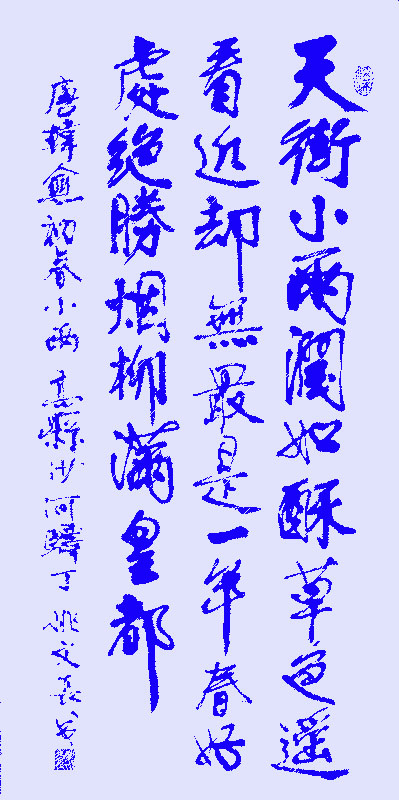 天街小雨潤如酥草色遥
看近却無最是一年春好
處絶勝烟柳滿皇都
唐韓愈初春小雨 高縣沙河疇丁 姚文長書